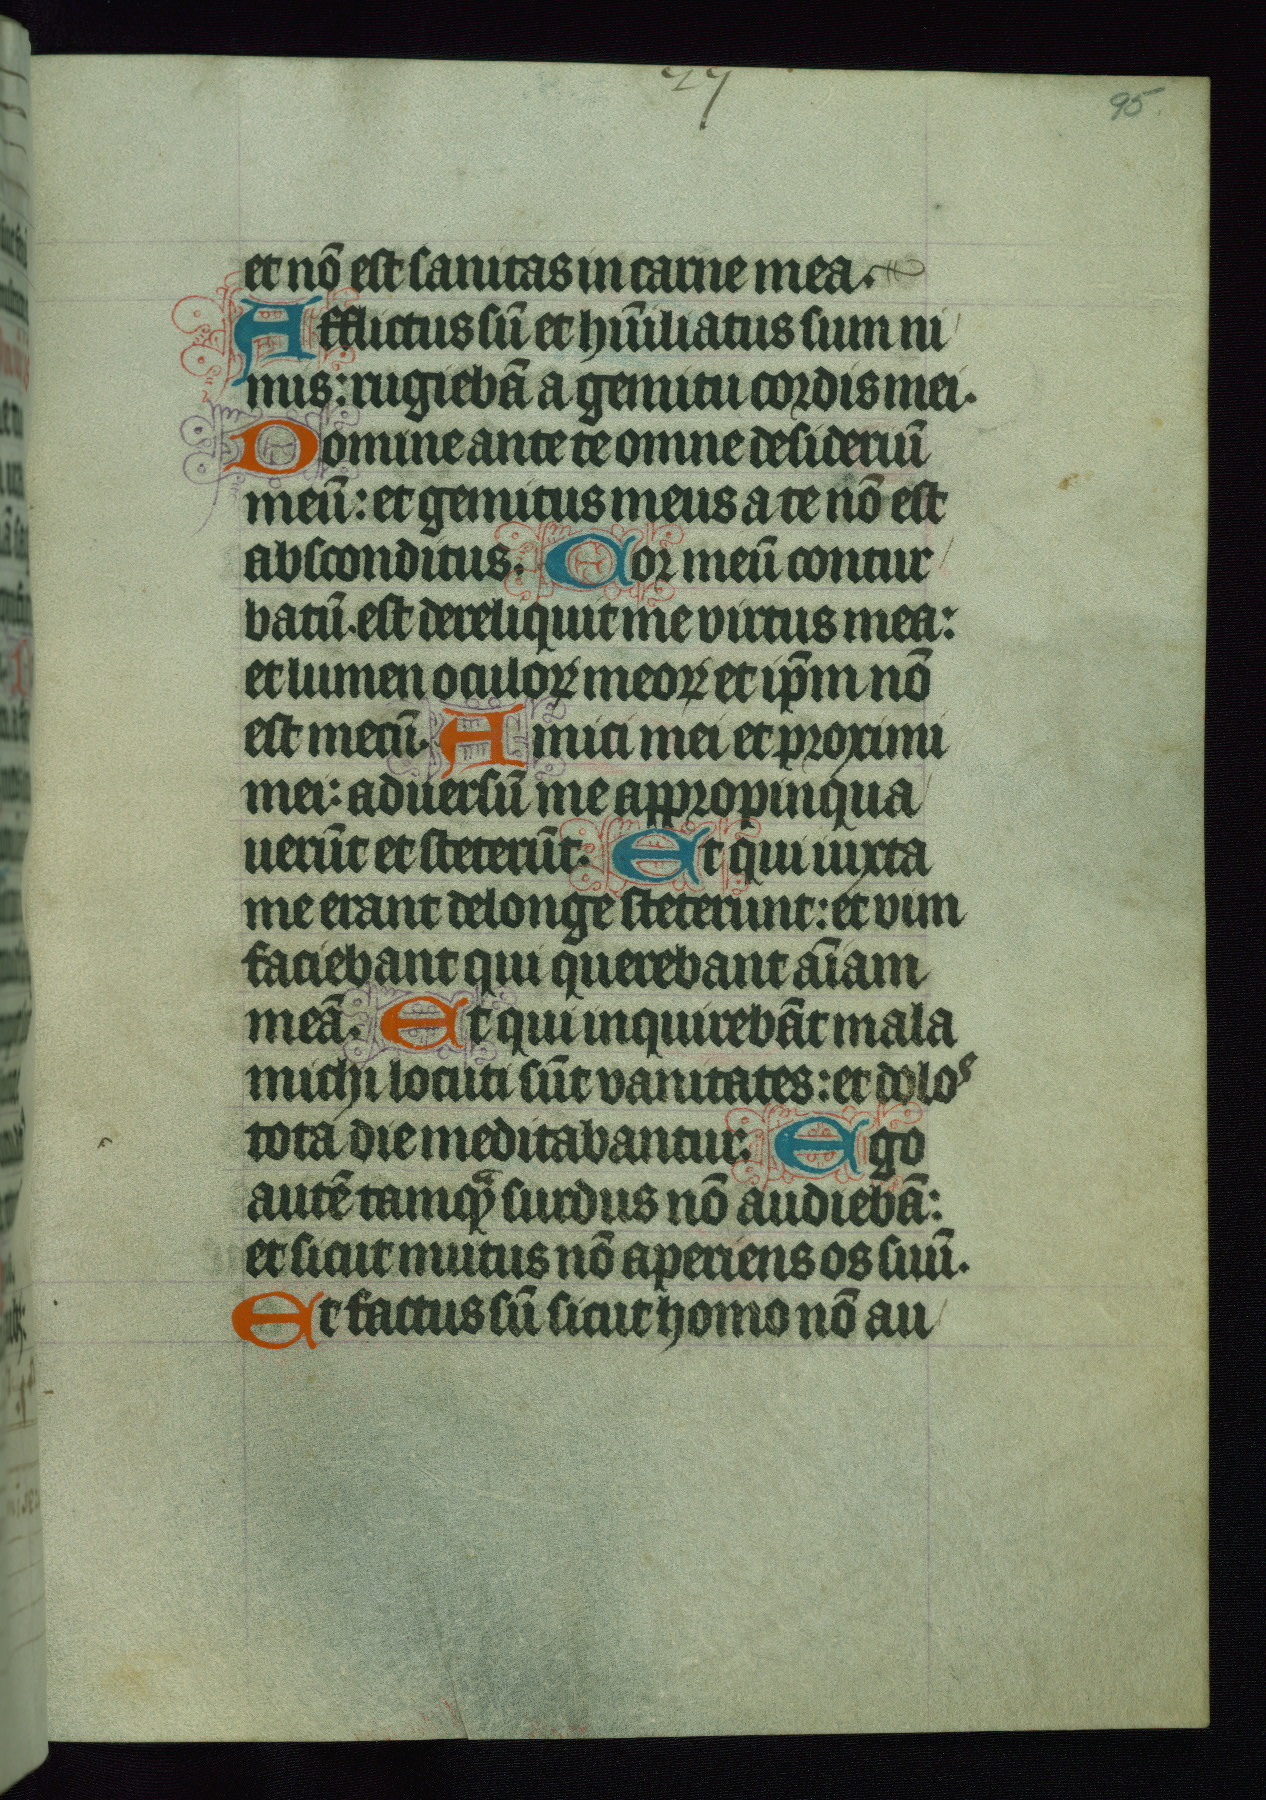 95
et nõ est sanitas in carne mea.
Afflictus sũ et hũiliatus sum ni
mis: rugiebã a gemitu cordis mei.
Domine ante te omne desideriũ
meũ: et gemitus meus a te nõ est
absconditus. Cor meũ contur
batũ. est dereliquit me virtus mea:
et lumen oculoꝝ meoꝝ et ip̃m nõ
est mecũ. Amici mei et proximi
mei: aduersũ me appropinqua
uerũt et steterũt. Et qui iuxta
me erant de longe steterunt: et vim
faciebant qui querebant aĩam
meã. Et qui inquirebãt mala
michi locuti sũt vanitates: et dolos
tota die meditabantur. Ego
autẽ tamqᷓ surdus nõ audiebã:
et sicut mutus nõ aperiens os suũ.
Et factus sũ sicut homo nõ au